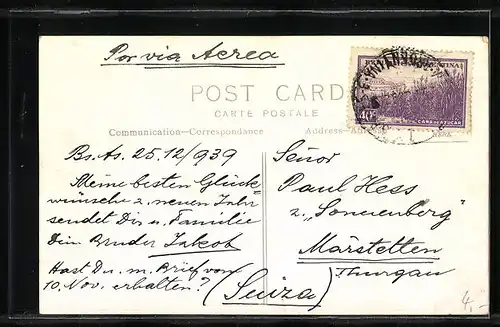 Por via Aerea
POST CARD
CARTE POSTALE
Communication—Correspondance
Address—
HERE
REP. ARGENTINA
40c
CAÑA DE AZUCAR
Bs. As. 25.12/939
Meine besten Glück-
wünsche z. neuen Jahr
sendet Dir u. Familie
Dein Bruder Jakob
Hast Du m. Brief vom
10. Nov. erhalten?
Señor
Paul Hess
z. „Sonnenberg"
Märstetten
Thurgau
(Suiza)
4,-